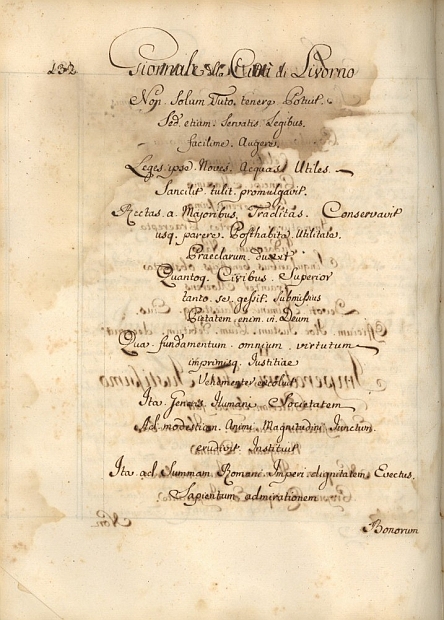 132
Giornale della Città di Livorno
Non. Solum Tuto. tenere. Potuit.
Sed. etium. Servatis Legibus.
facilime. Augere.
Leges. ipse. Noves. Aequas. Utiles.
Sanciuit. tulit. promulgavit.
Rectas. a. Majoribus. Traditas. Conservavit
usq. parere. Posthabita. Utilitate.
Praeclarum. Duxit
Quantoq. Civibus. Superior
tanto. se. gessit. Submissius
Pietatem. enim. in. Deum
Qua. fundamentum. omnium. virtutum
imprimisq. Iustitiae
Vehementer. excoluit
Ita. Generis. Humani. Societatem
Ad. modestiam. Animi. Magnitudini. Iunctam.
erudivit. Instituit
Ita. ad. Summam. Romani. Imperi. dignitatem. Evectus.
Sapientum admirationem
Bonorum